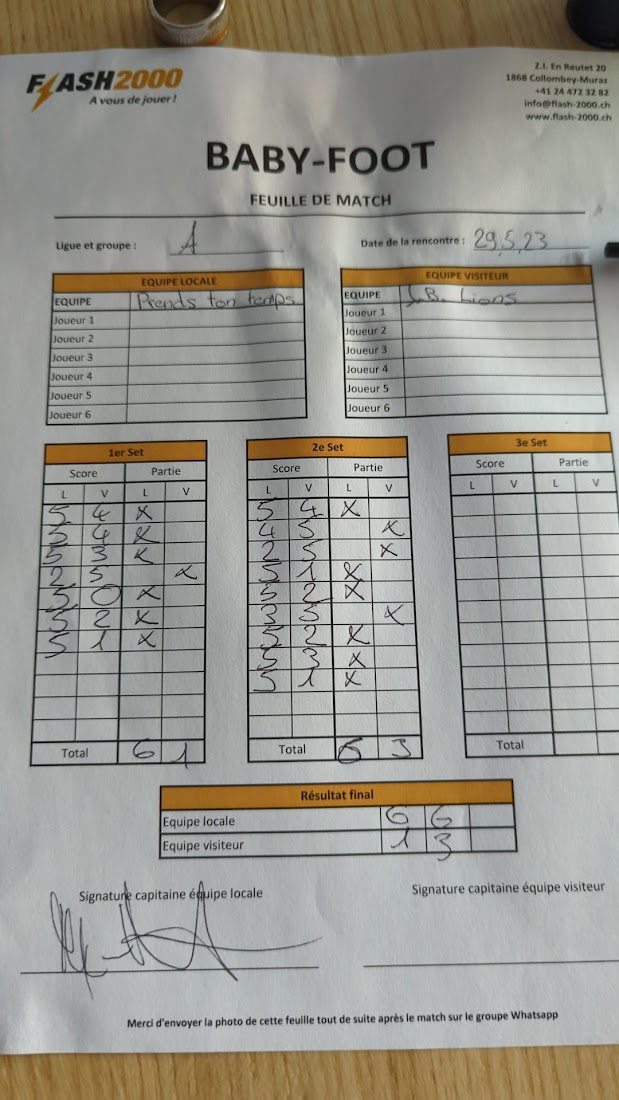 FLASH2000
A vous de jouer !
Z.I. En Reutet 20
1868 Collombey-Muraz
+41 24 472 32 82
info@flash-2000.ch
www.flash-2000.ch
BABY-FOOT
FEUILLE DE MATCH
Ligue et groupe : A
Date de la rencontre : 29.5.23
EQUIPE LOCALE
EQUIPE Prends ton temps
Joueur 1
Joueur 2
Joueur 3
Joueur 4
Joueur 5
Joueur 6
EQUIPE VISITEUR
EQUIPE B. Lions
Joueur 1
Joueur 2
Joueur 3
Joueur 4
Joueur 5
Joueur 6
1er Set
Score Partie
L V L V
5 4 X
5 4 X
5 3 X
2 5 X
5 0 X
5 2 X
5 1 X
Total 6 1
2e Set
Score Partie
L V L V
5 4 X
4 5 X
2 5 X
5 1 X
5 2 X
3 5 X
5 2 X
5 3 X
5 1 X
Total 6 3
3e Set
Score Partie
L V L V
Total
Résultat final
Equipe locale 6 6
Equipe visiteur 1 3
Signature capitaine équipe locale
Signature capitaine équipe visiteur
Merci d'envoyer la photo de cette feuille tout de suite après le match sur le groupe Whatsapp